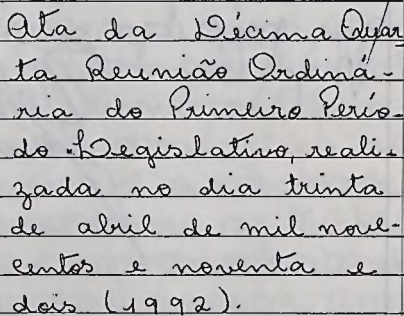 Ata da Décima Quar
ta Reunião Ordiná-
ria do Primeiro Perío-
do Legislativo, reali-
zada no dia trinta
de abril de mil nove-
centos e noventa e
dois (1992).